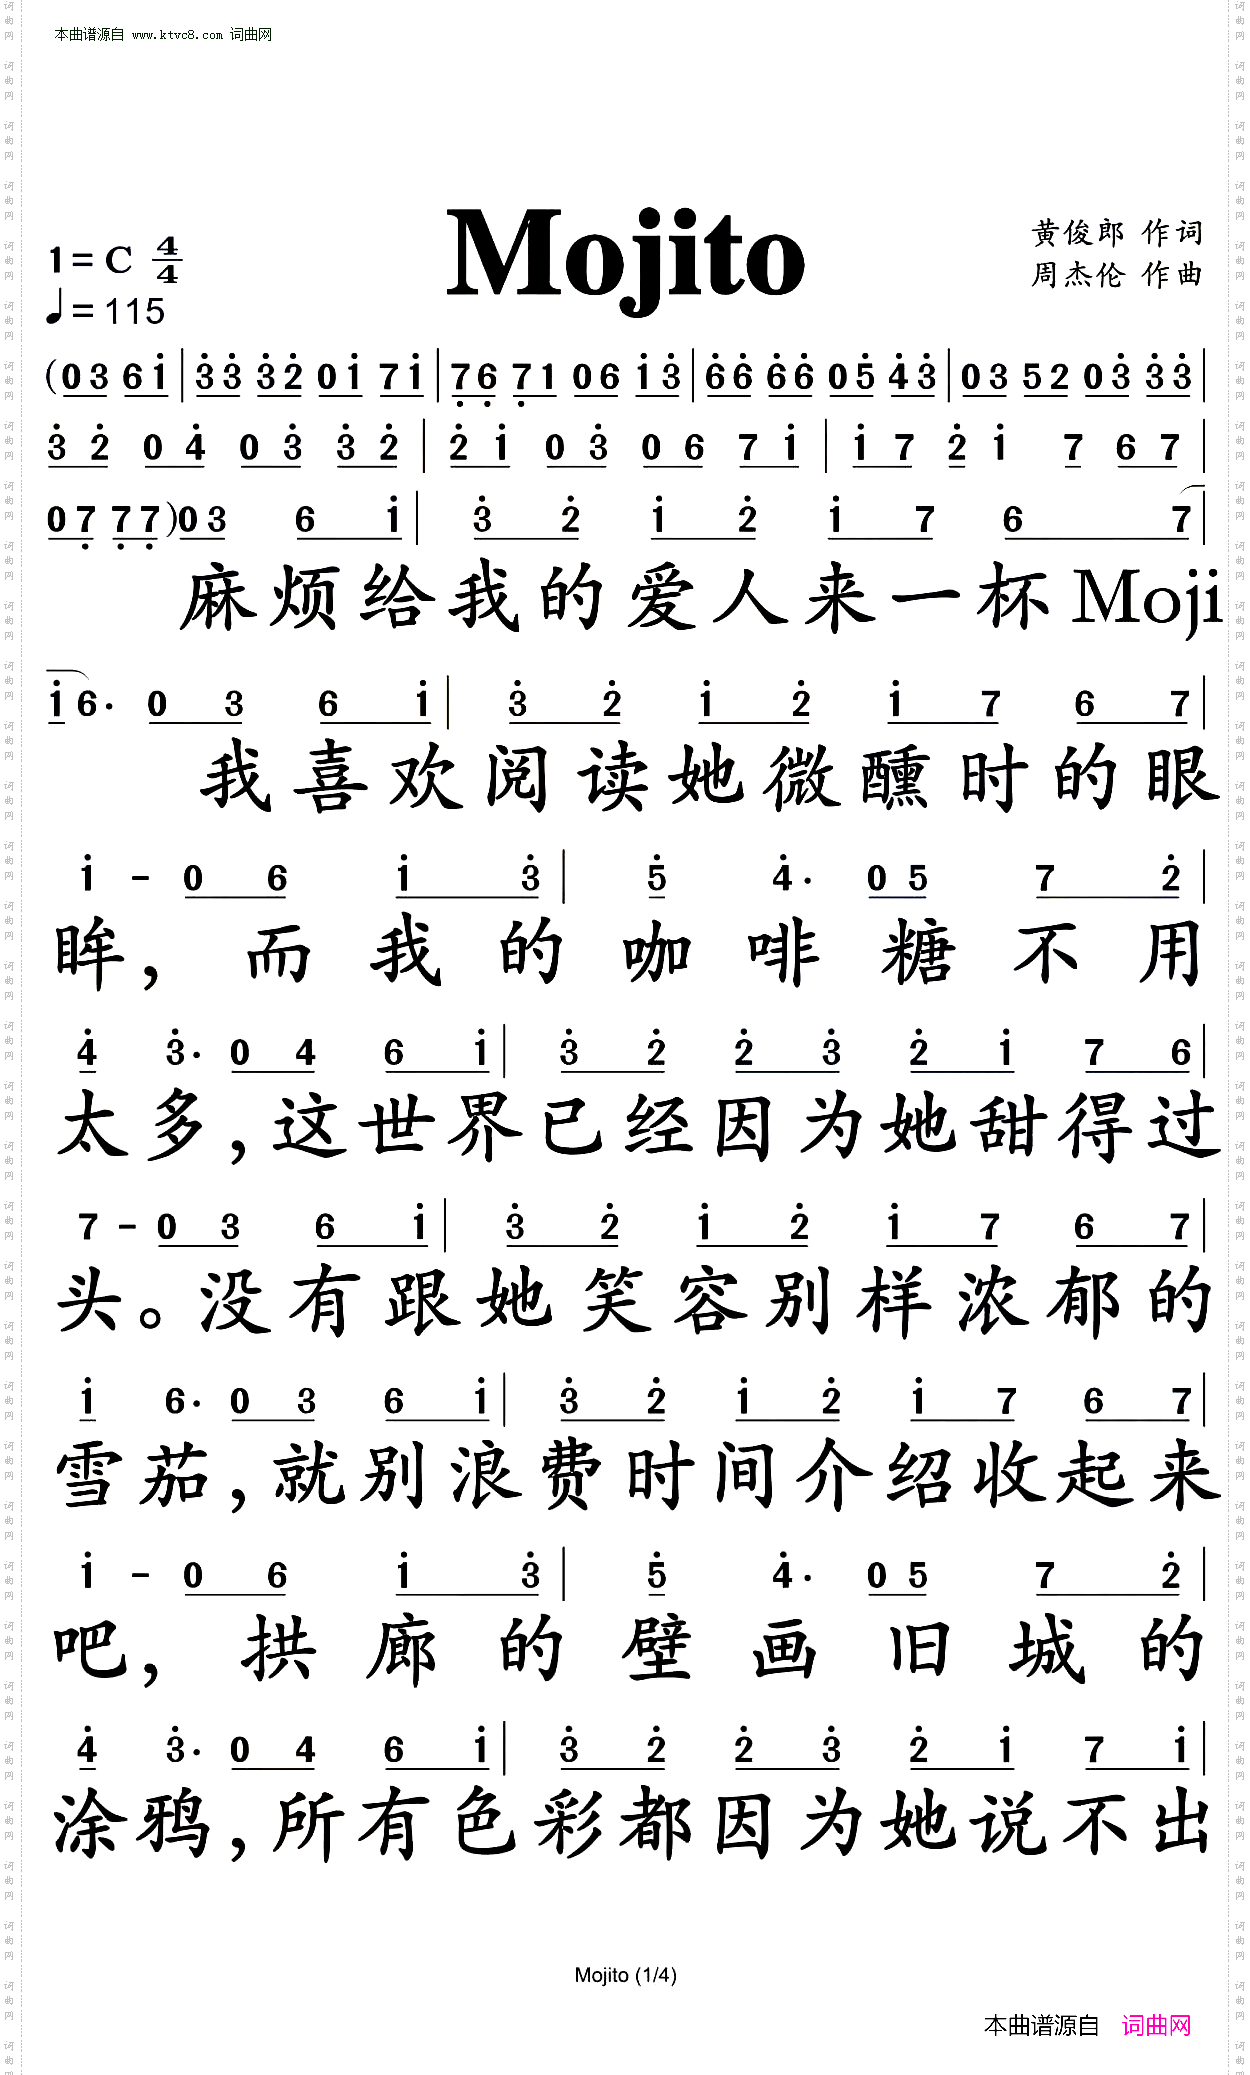 本曲谱源自 www.ktvc8.com 词曲网
Mojito
1=C 4/4
♩=115
黄俊郎 作词
周杰伦 作曲
(03 6i̇ | 3̇3̇ 3̇2̇ 0i̇ 7i̇ | 7̣̇6̣̇ 7̣̇1 06 i̇3̇ | 6̇6̇ 6̇6̇ 05̇ 4̇3̇ | 03 52 03̇ 3̇3̇ |
3̇2̇ 04̇ 03̇ 3̇2̇ | 2̇i̇ 03̇ 06 7i̇ | i̇7 2̇ i̇ 7 67 |
07̣ 7̣7̣) 03 6i̇ | 3̇ 2̇ i̇ 2̇ i̇ 7 6 7 |
麻烦给我的爱人来一杯Moji
i̇ 6· 0 3 6 i̇ | 3̇ 2̇ i̇ 2̇ i̇ 7 6 7 |
我喜欢阅读她微醺时的眼
i̇ - 0 6 i̇ 3̇ | 5̇ 4̇· 0 5 7 2̇ |
眸，而我的咖啡糖不用
4̇ 3̇· 0 4 6 i̇ | 3̇ 2̇ 2̇ 3̇ 2̇ i̇ 7 6 |
太多，这世界已经因为她甜得过
7 - 0 3 6 i̇ | 3̇ 2̇ i̇ 2̇ i̇ 7 6 7 |
头。没有跟她笑容别样浓郁的
i̇ 6· 0 3 6 i̇ | 3̇ 2̇ i̇ 2̇ i̇ 7 6 7 |
雪茄，就别浪费时间介绍收起来
i̇ - 0 6 i̇ 3̇ | 5̇ 4̇· 0 5 7 2̇ |
吧，拱廊的壁画旧城的
4̇ 3̇· 0 4 6 i̇ | 3̇ 2̇ 2̇ 3̇ 2̇ i̇ 7 i̇ |
涂鸦，所有色彩都因为她说不出
Mojito (1/4)
本曲谱源自 词曲网